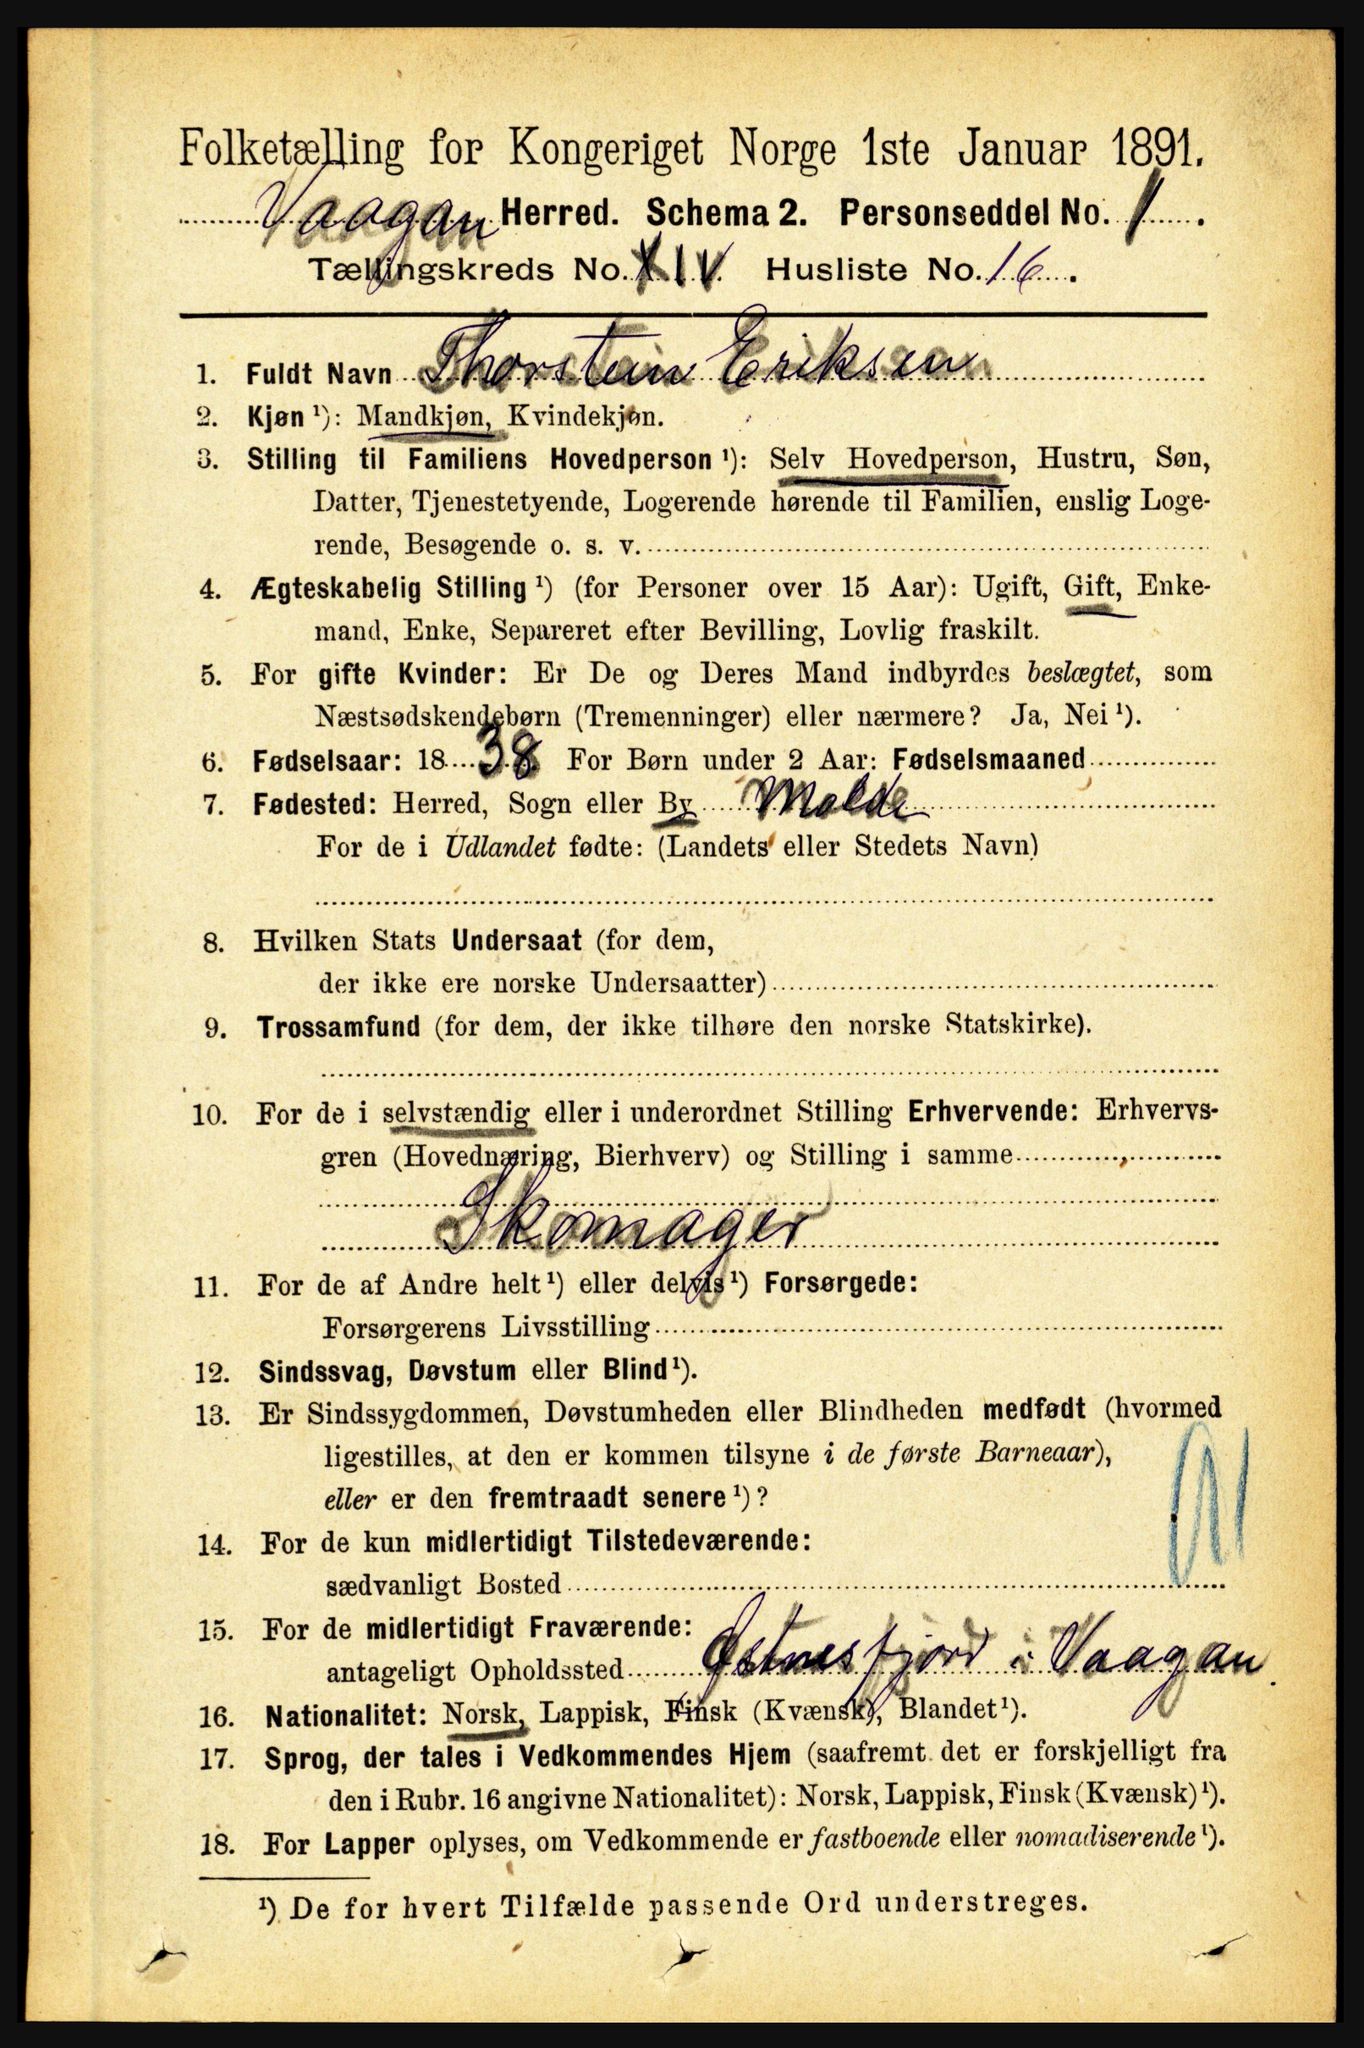 Folketælling for Kongeriget Norge 1ste Januar 1891.
Vaagan Herred. Schema 2. Personseddel No. 1.
Tællingskreds No. XIV Husliste No. 16.
1. Fuldt Navn Thorstein Eriksen
2. Kjøn ¹): Mandkjøn, Kvindekjøn.
3. Stilling til Familiens Hovedperson ¹): Selv Hovedperson, Hustru, Søn,
Datter, Tjenestetyende, Logerende hørende til Familien, enslig Loge-
rende, Besøgende o. s. v.
4. Ægteskabelig Stilling ¹) (for Personer over 15 Aar): Ugift, Gift, Enke-
mand, Enke, Separeret efter Bevilling, Lovlig fraskilt.
5. For gifte Kvinder: Er De og Deres Mand indbyrdes beslægtet, som
Næstsødskendebørn (Tremenninger) eller nærmere? Ja, Nei ¹).
6. Fødselsaar: 1838. For Børn under 2 Aar: Fødselsmaaned
7. Fødested: Herred, Sogn eller By Molde
For de i Udlandet fødte: (Landets eller Stedets Navn)
8. Hvilken Stats Undersaat (for dem,
der ikke ere norske Undersaatter)
9. Trossamfund (for dem, der ikke tilhøre den norske Statskirke).
10. For de i selvstændig eller i underordnet Stilling Erhvervende: Erhvervs-
gren (Hovednæring, Bierhverv) og Stilling i samme
Skomager
11. For de af Andre helt ¹) eller delvis ¹) Forsørgede:
Forsørgerens Livsstilling
12. Sindssvag, Døvstum eller Blind ¹).
13. Er Sindssygdommen, Døvstumheden eller Blindheden medfødt (hvormed
ligestilles, at den er kommen tilsyne i de første Barneaar),
eller er den fremtraadt senere ¹)?
14. For de kun midlertidigt Tilstedeværende:
sædvanligt Bosted
15. For de midlertidigt Fraværende:
antageligt Opholdssted Østnesfjord i Vaagan.
16. Nationalitet: Norsk, Lappisk, Finsk (Kvænsk), Blandet ¹).
17. Sprog, der tales i Vedkommendes Hjem (saafremt det er forskjelligt fra
den i Rubr. 16 angivne Nationalitet): Norsk, Lappisk, Finsk (Kvænsk) ¹).
18. For Lapper oplyses, om Vedkommende er fastboende eller nomadiserende ¹).
¹) De for hvert Tilfælde passende Ord understreges.